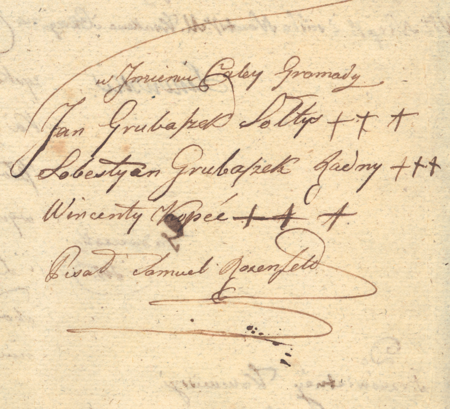 w Jmieniu Całey Gromady
Jan Grubaszek Sołtys +++
Sobestyan Grubaszek Radny +++
Wincenty Kopeć +++
Pisał Samuel Rozenfeld